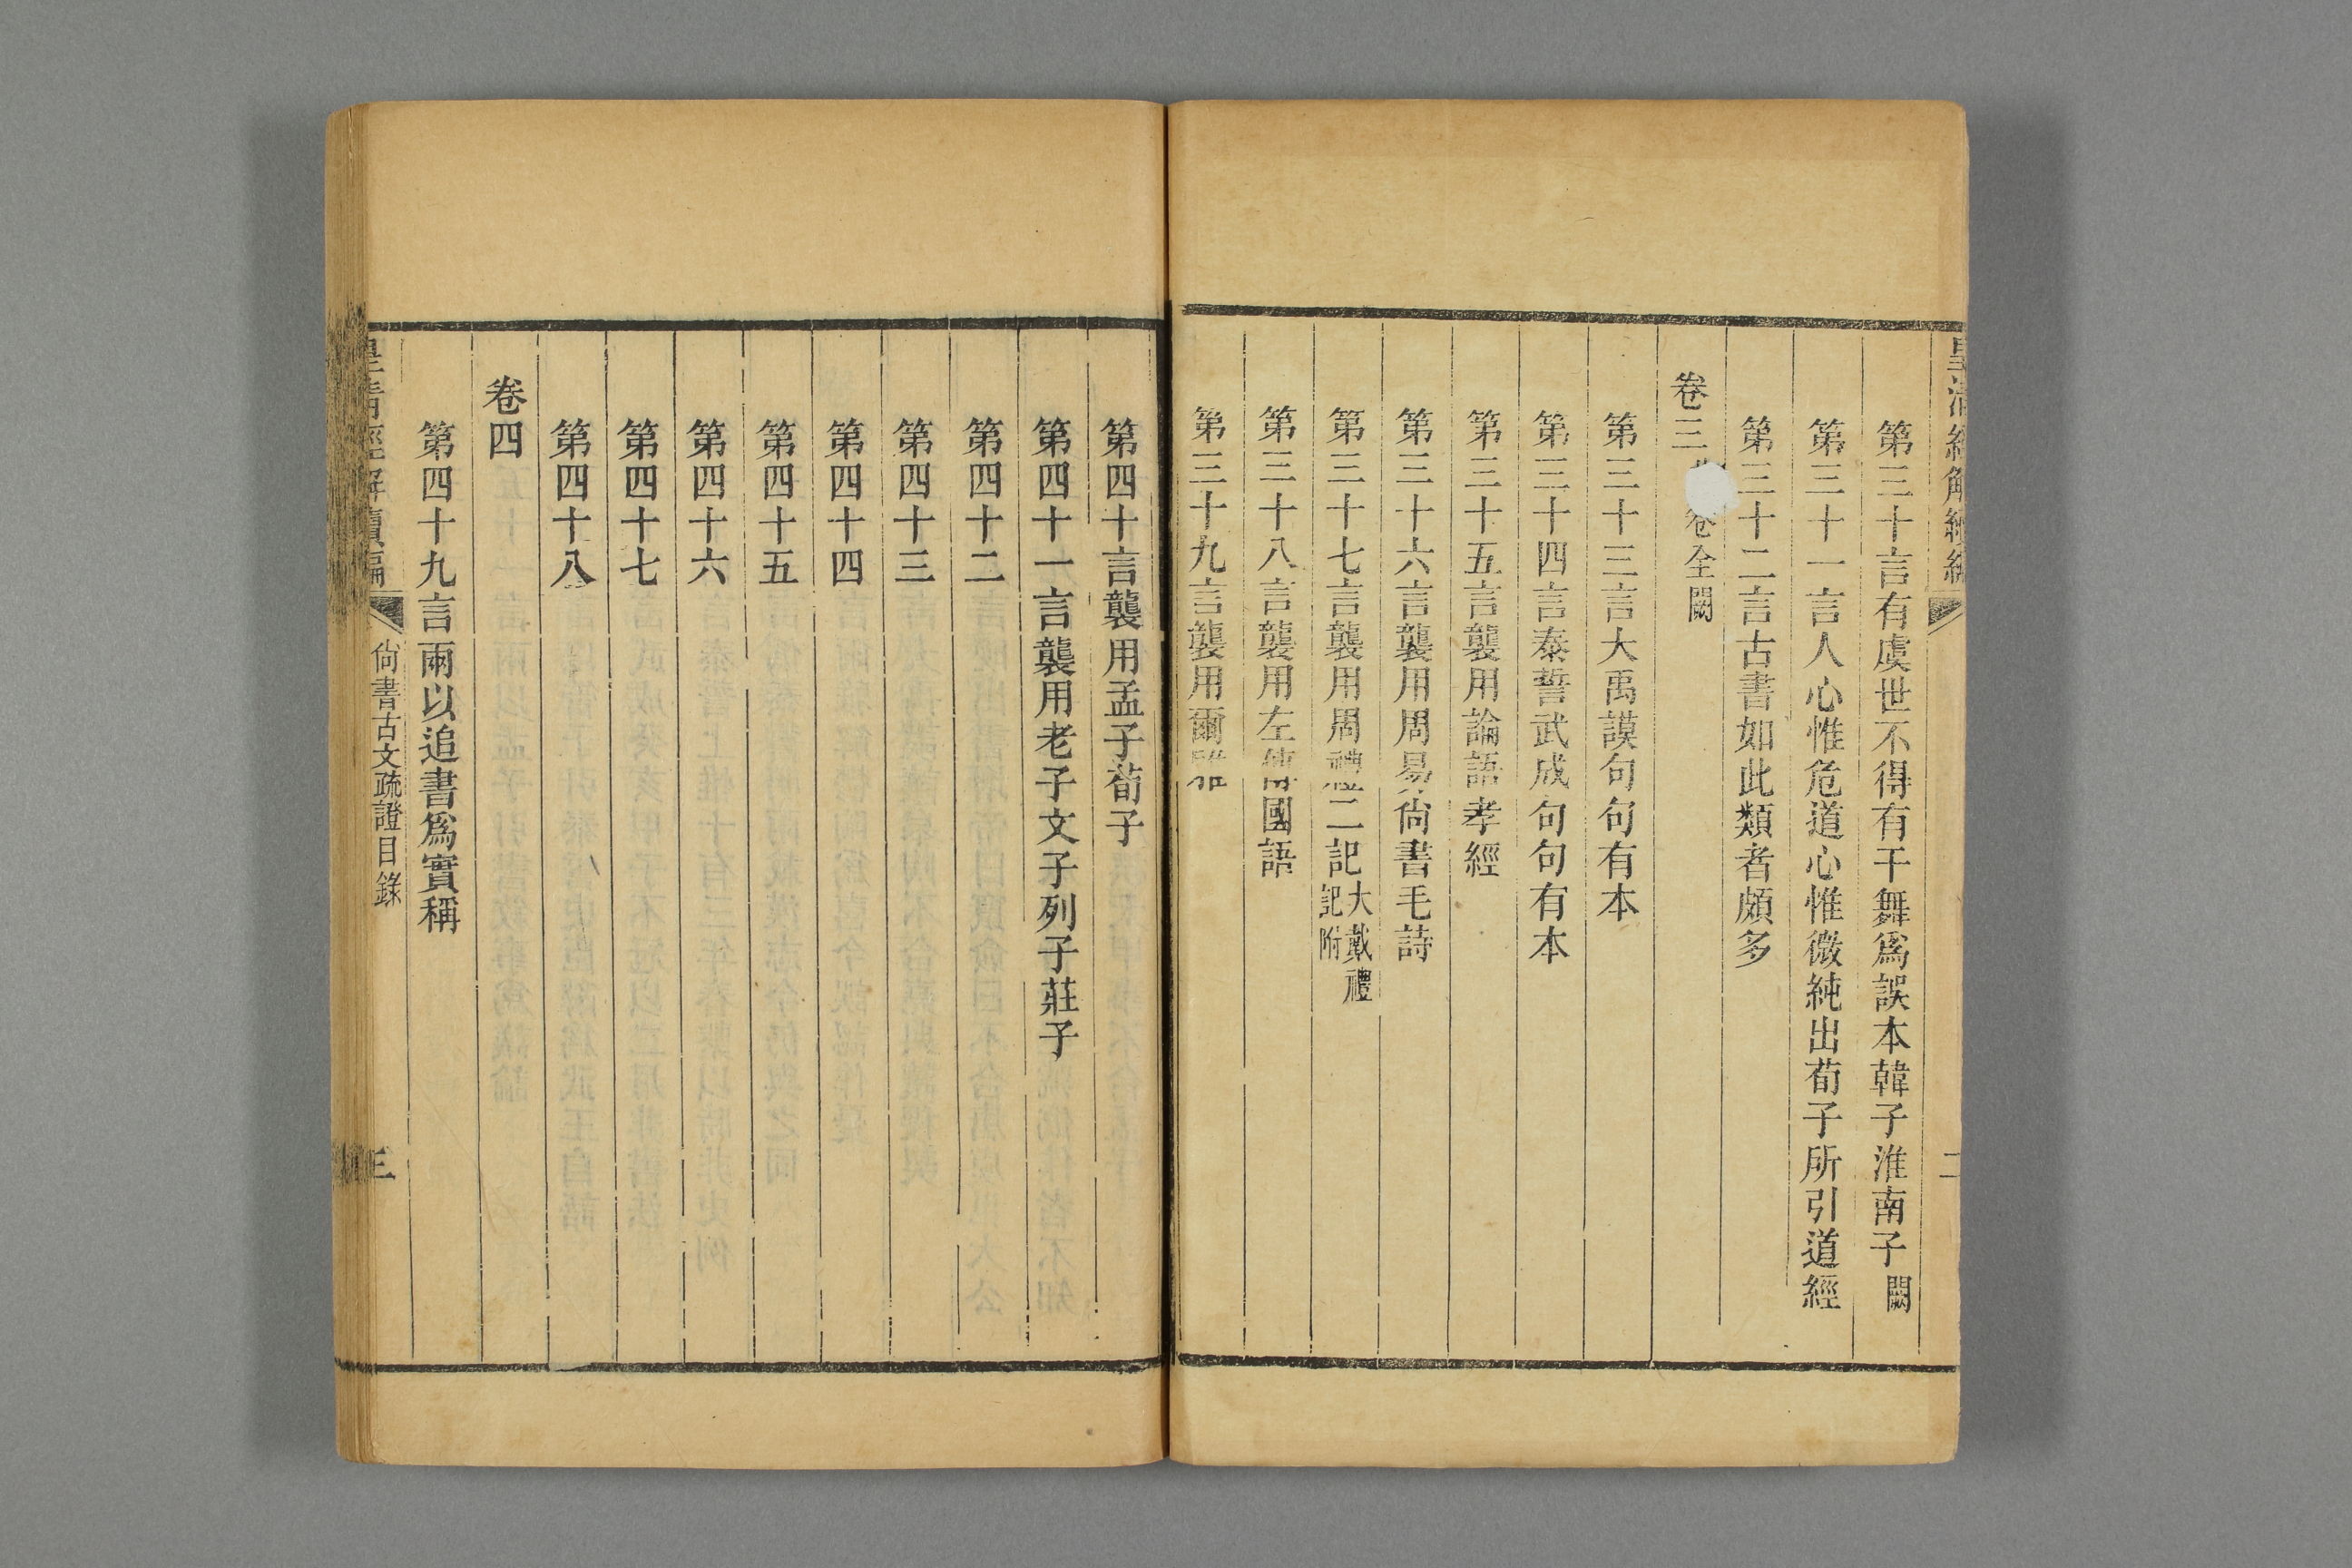 第三十言有虞世不得有干舞爲誤本韓子淮南子闕
第三十一言人心惟危道心惟微純出荀子所引道經
第三十二言古書如此類者頗多
卷三 卷全闕
第三十三言大禹謨句句有本
第三十四言泰誓武成句句有本
第三十五言襲用論語孝經
第三十六言襲用周易尙書毛詩
第三十七言襲用周禮二記大戴禮記附
第三十八言襲用左傳國語
第三十九言襲用爾雅
第四十言襲用孟子荀子
第四十一言襲用老子文子列子莊子
第四十二
第四十三
第四十四
第四十五
第四十六
第四十七
第四十八
卷四
第四十九言兩以追書爲實稱
皇淸經解續編 尙書古文疏證目錄 三